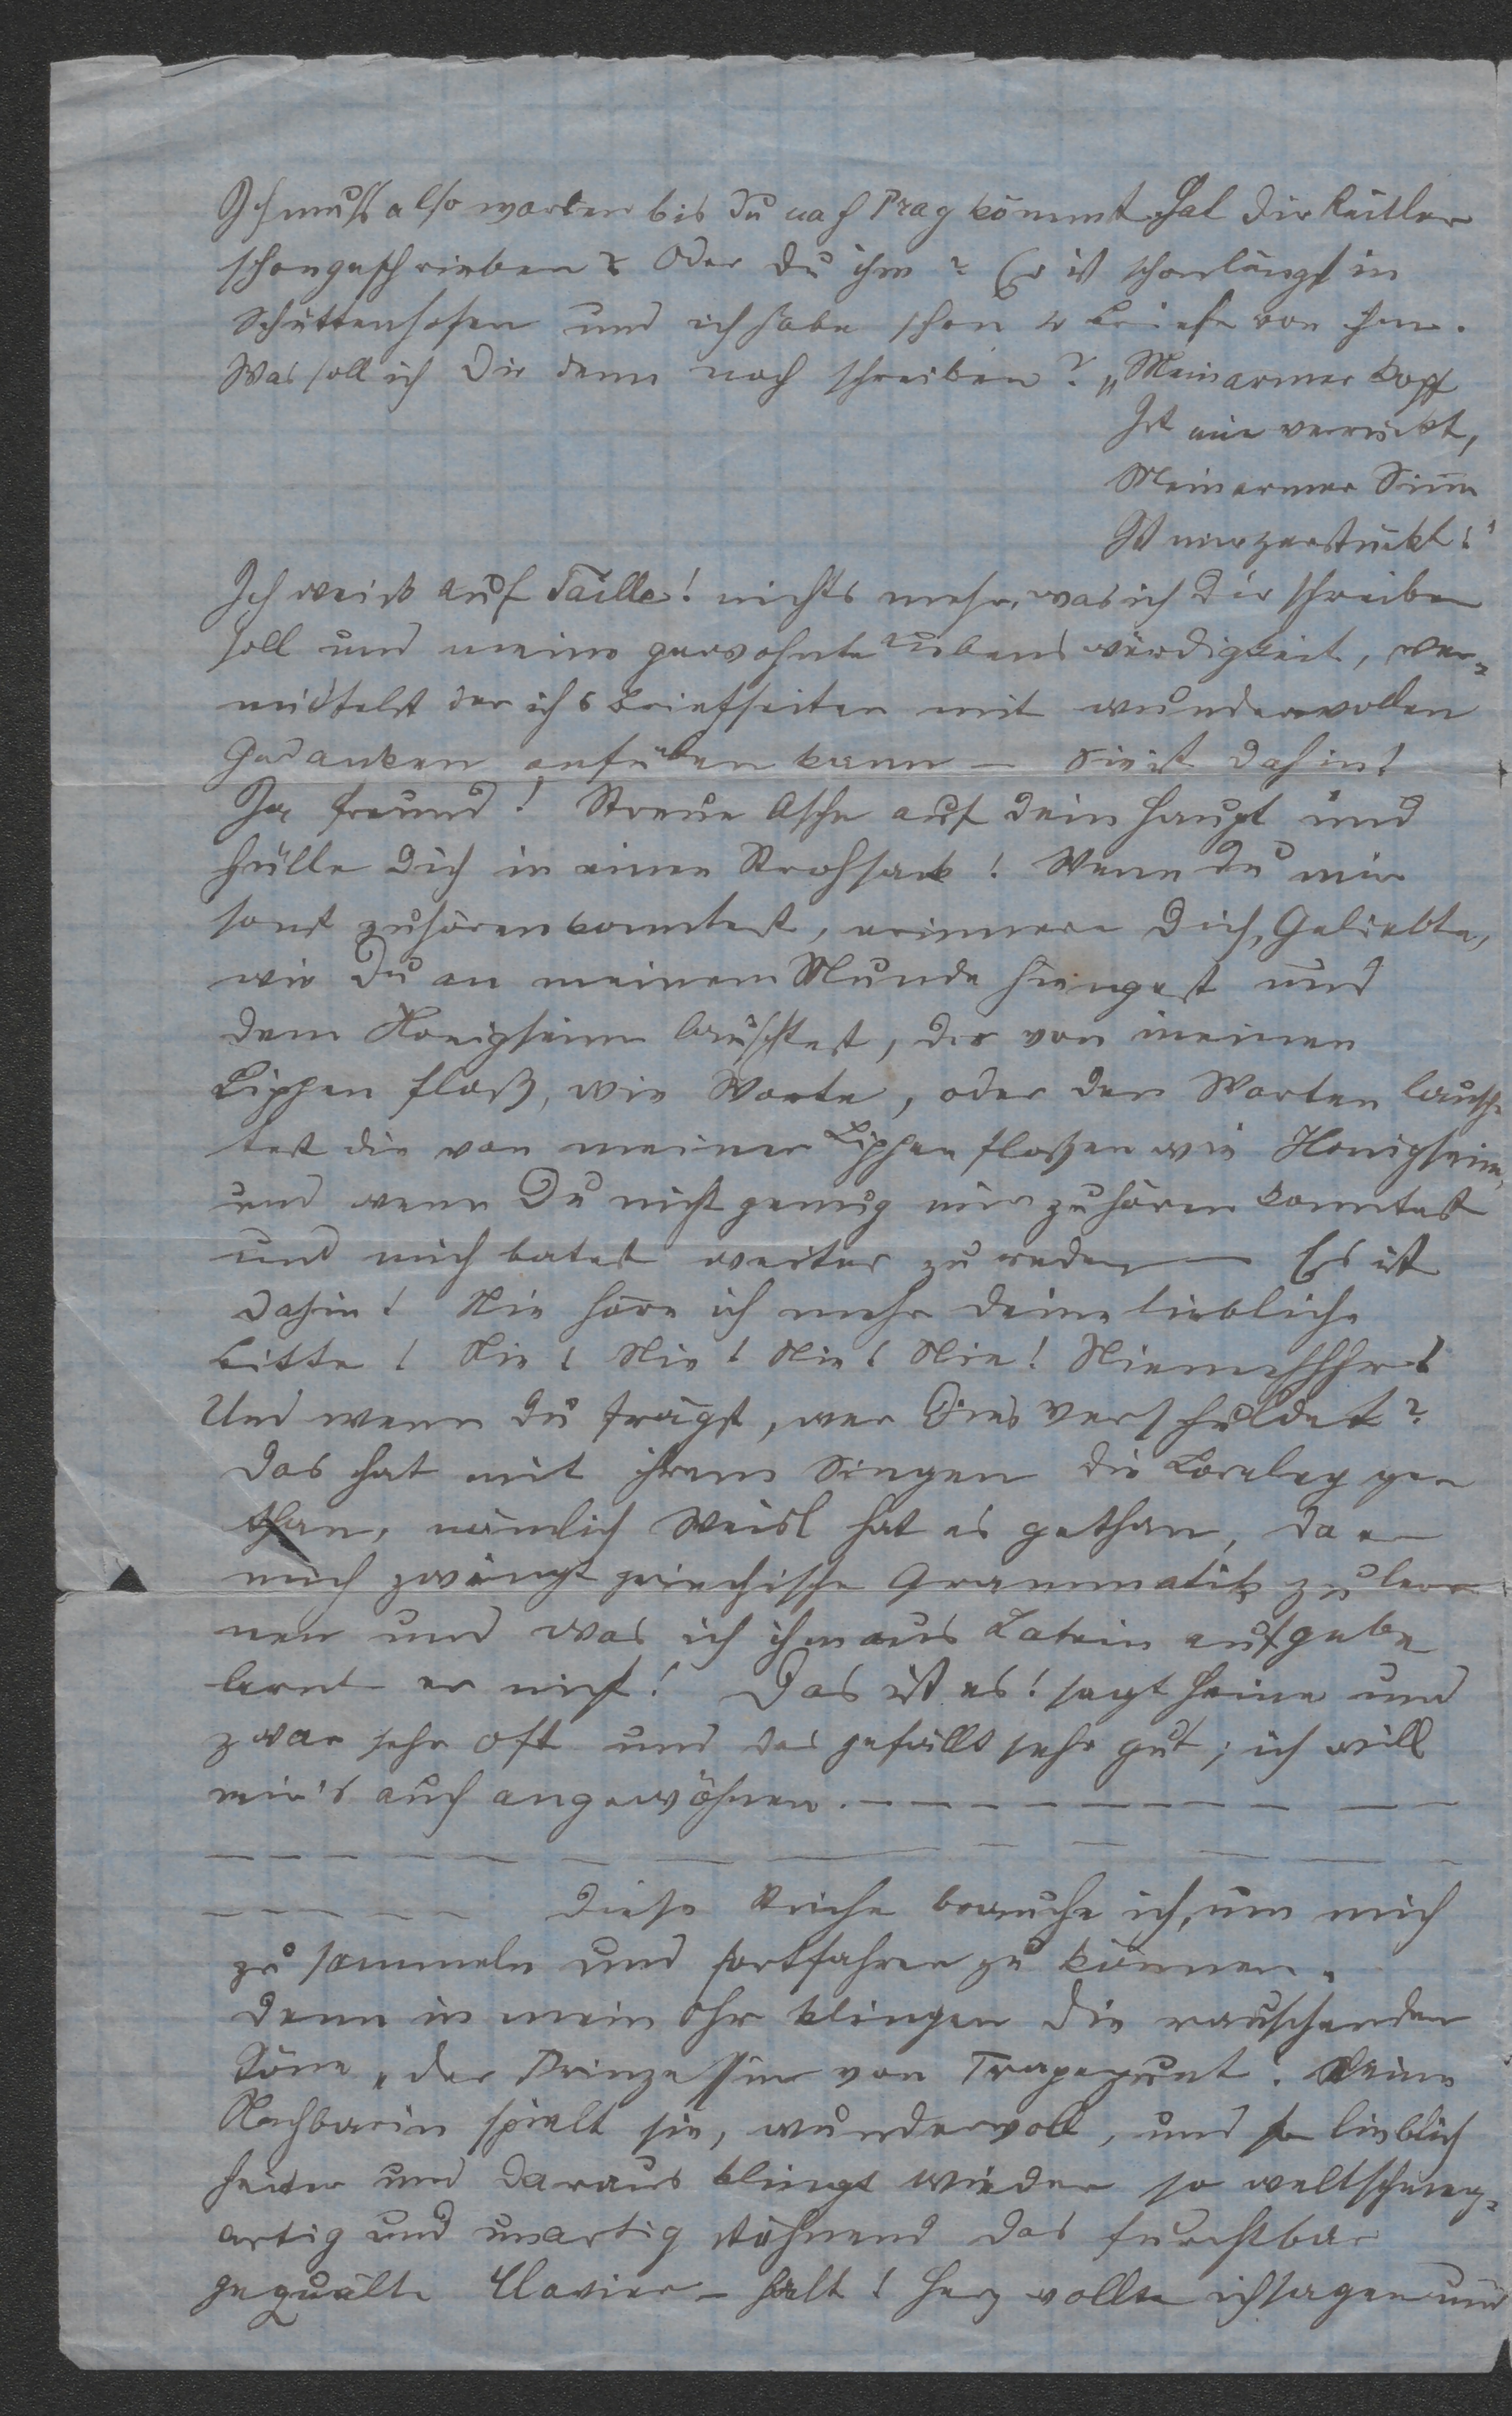 Ich muß also warten bis du nach Prag kömmst. Hat dir
schon geschrieben? Oder du ihm? Er ist schon längst in
Schüttenhofen und ich habe schon 4 Briefe von ihm.
Was soll ich Dir denn noch schreiben? „Mein armer Kopf
Ist mir verrückt,
Mein armer Sinn
Ist mir zerstückt!"
Ich weiß auf Taille! nichts mehr, was ich dir schreiben
soll und meine gewohnte Liebenswürdigkeit, ver-
mittelst der ich 6 Briefseiten mit wundervollen
Gedanken anfüllen kann – sie ist dahin!
Ja Freund! Streue Asche auf dein Haupt und
hülle dich in einen Strohsack! Wenn du mir
sonst zuhören konntest, erinnere Dich, Geliebte,
wie Du an meinem Munde hiengest und
dem Honigseim lauschtest, der von meinen
Lippen floß, wie Worte, oder den Worten lausch
test die von meinen Lippen floßen wie Honigseim,
und wenn Du nicht genug mir zuhören konntest
und mich batest weiter zu reden – Es ist
dahin! Nie höre ich mehr deine liebliche
Bitte! Nie! Nie! Nie! Nie! Niemehhhr!
Und wenn du frägst, wer Dies verschuldet?
Das hat mit ihrem Singen die Loreley ge
than, nämlich Weisl hat es gethan, da er
mich zwingt griechische Grammatik zu ler
nen und was ich ihm aus Latein aufgebe
lernt er nicht! Das ist es! sagt Heine und
zwar sehr oft und das gefällt sehr gut; ich will
mir's auch angewöhnen. – – – – – – – – –
– – – – – – – – – – – – – – –
– – – – – Diese Striche brauche ich, um mich
zu sammeln und fortfahren zu können.
Denn in mein Ohr klingen die rauschenden
Töne „der Prinzessin von Trapezunt". Meine
Nachbarin spielt sie, wundervoll, und so lieblich
heiter und daraus klingt wieder so weltschmerz-
artig und unartig stöhnend das furchtbar
gequälte Clavier – halt! Herz wollte ich sagen und